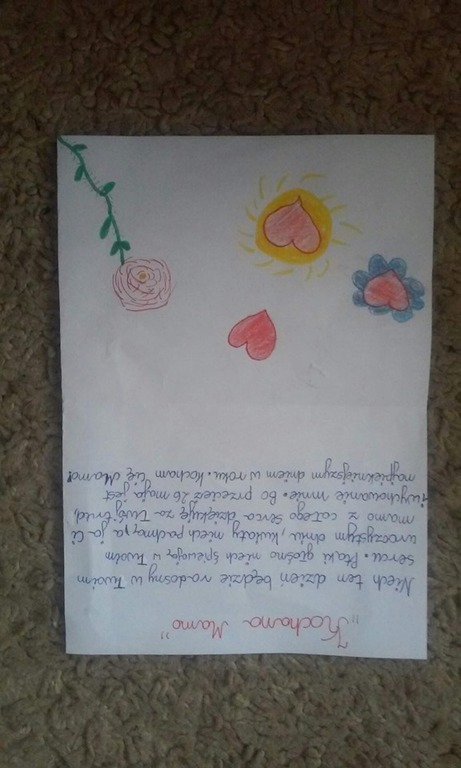 „Kochana Mamo”
Niech ten dzień będzie radosny w Twoim
sercu. Ptaki głośno niech śpiewają, w Twoim
uroczystym dniu, kwiaty niech pachną, a ja Ci
mamo z całego serca dziękuję za Twój trud,
i wychowanie mnie. Bo przecież 26 maja jest
najpiękniejszym dniem w roku. Kocham Cię Mamo!